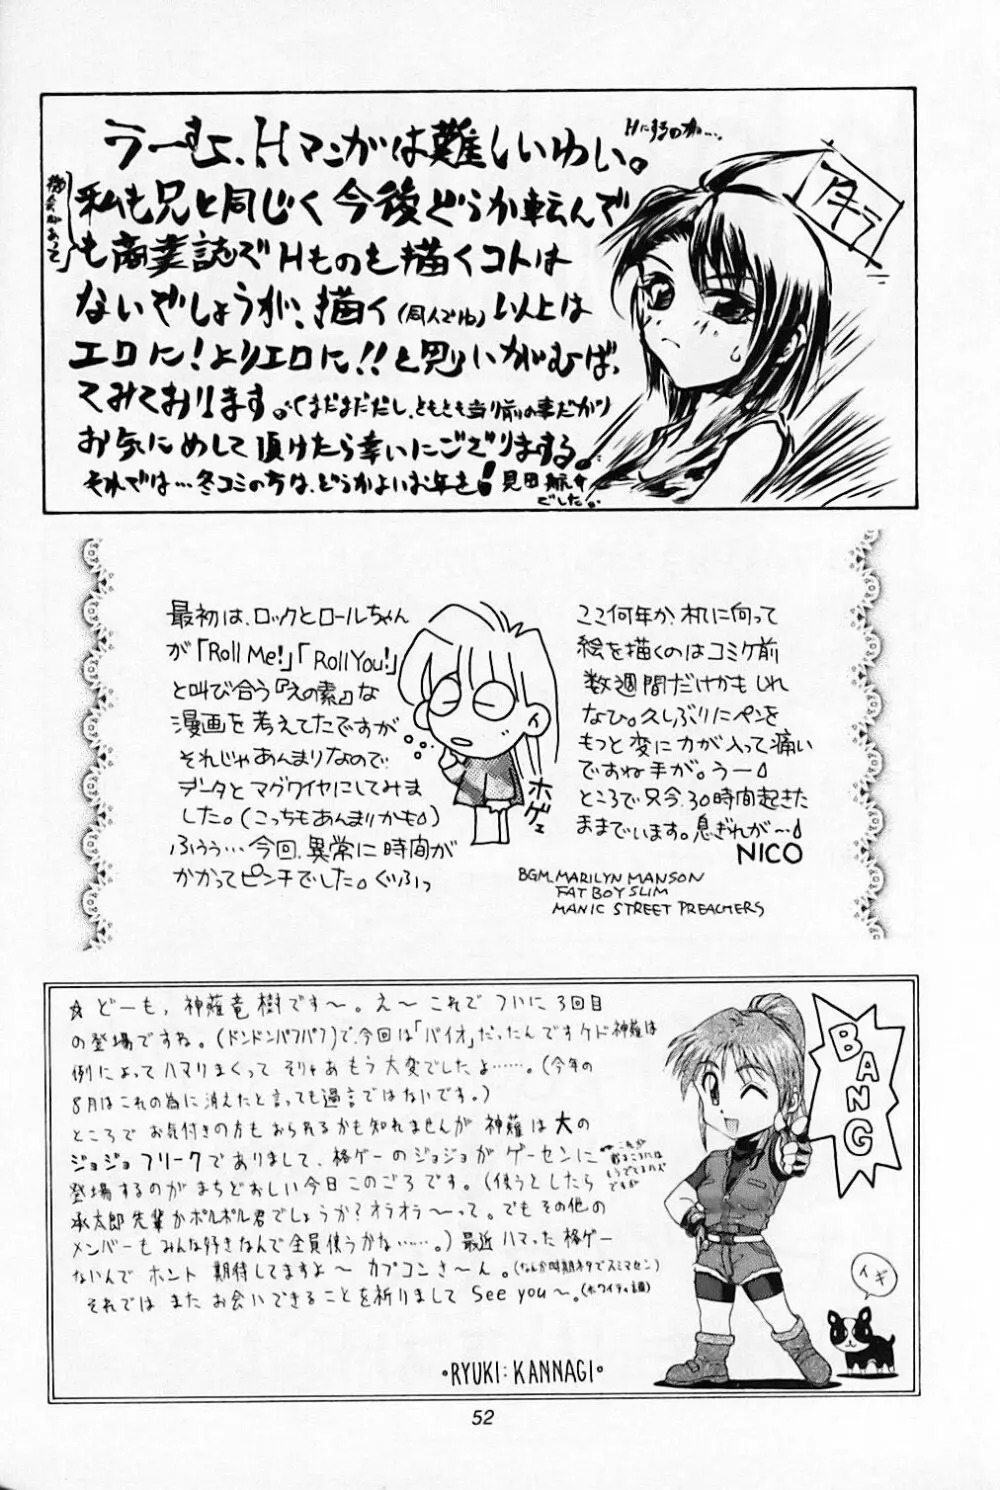 うーむ、Hマンガは難しいゆい。
Hにするのが…。
私も兄と同じく今後どうか転んで
機会があって
も商業誌でHものを描くコトは
ないでしょうが、描く(同人でね)以上は
エロに!よりエロに!!と思い
てみております。(まだまだだし、ともとも当り前の事だが)
お気にめして頂けたら幸いにござりまする。
それでは…冬コミの方は、どうかよいお年を!
でした。
アキラ
最初は、ロックとロールちゃん
が「Roll Me!」「Roll You!」
と叫び合う『えの素』な
漫画を考えてたですが
それじゃあんまりなので
データとマグワイヤにしてみま
した。(こっちもあんまりかも)
ふぅぅ…今回、異常に時間が
かかってピンチでした。ぐふっ
ホゲェ
ここ何年か、机に向って
絵を描くのはコミケ前
数週間だけかもしれ
なひ。久しぶりにペンを
もつと変に力が入って痛い
ですね手が。うー
ところで只今、30時間起きた
まま でいます。息ぎれが〜
NICO
BGM. MARILYN MANSON
FAT BOY SLIM
MANIC STREET PREACHERS
☆ どーも、神薙竜樹です〜。え〜これでついに3回目
の登場ですね。(ドンドンパフパフ)で、今回は「バイオ」だったんですケド神薙は
例によってハマりまくって そりゃあもう大変でしたよ……。(今年の
8月はこれの為に消えたと言っても過言ではないです。)
ところで お気付きの方もおられるかも知れませんが 神薙は大の
ジョジョフリークでありまして、格ゲーのジョジョがゲーセンに
これが
出るころには
もうでてるハズ
ですが
登場するのが まちどおしい今日このごろです。(使うとしたら
承太郎先輩かポルポル君でしょうか?オラオラ〜って。でもその他の
メンバーもみんな好きなんで全員使うかな……。)最近ハマった格ゲー
ないんで ホント 期待してますよ〜カプコンさ〜ん。(なんか時期ネタでスミマセン)
それでは またお会いできることを祈りまして See you〜。(ホワイティ調)
・RYUKI:KANNAGI・
BANG
イギ
52